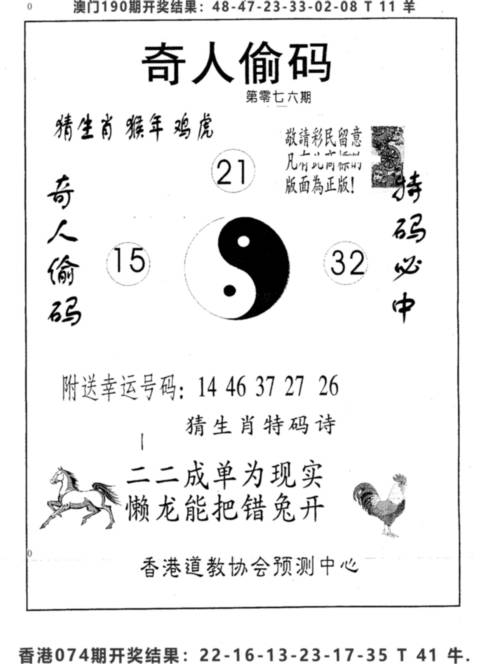 澳门190期开奖结果：48-47-23-33-02-08 T 11 羊
奇人偷码
第零七六期
猜生肖 猴年 鸡虎
敬請彩民留意
凡有此商標的
版面為正版!
21
奇人偷码
特码必中
15
32
附送幸运号码：14 46 37 27 26
猜生肖特码诗
二二成单为现实
懒龙能把错兔开
香港道教协会预测中心
香港074期开奖结果：22-16-13-23-17-35 T 41 牛.